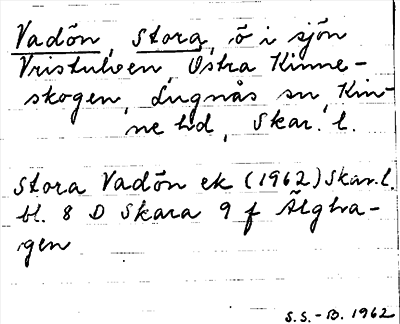 Vadön, Stora, ö i sjön
Vristulven, Östra Kinne-
skogen, Lugnås sn, Kin-
ne hd, Skar. l.
Stora Vadön ek (1962) Skar. l.
bl. 8 D Skara 9 f Älgha-
gen
S.S.-B. 1962